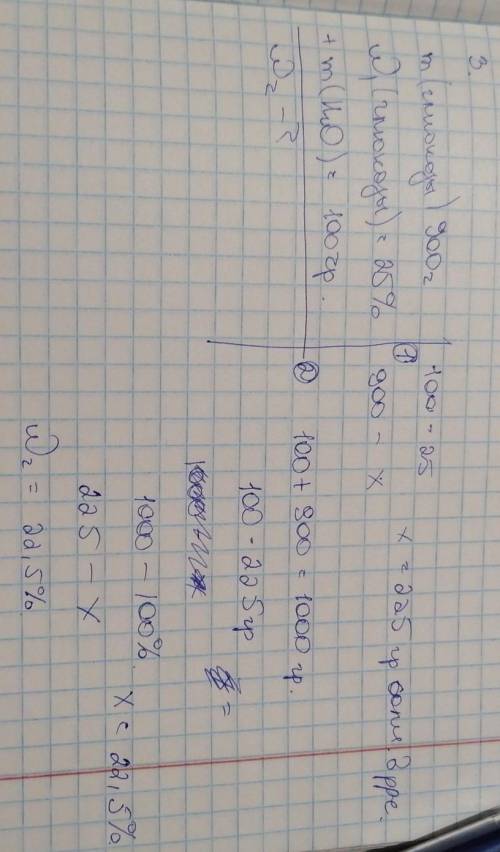 3.
m (глюкозы) 900г
W₁ (глюкозы) = 25%
+ m (H₂O) = 100 гр.
W₂ - ?
① 100 - 25
900 - x x = 225 гр
② 100 + 900 = 1000 гр.
100 - 225 гр
=
1000 - 100%.
225 - x x = 22,5%.
W₂ = 22,5%.